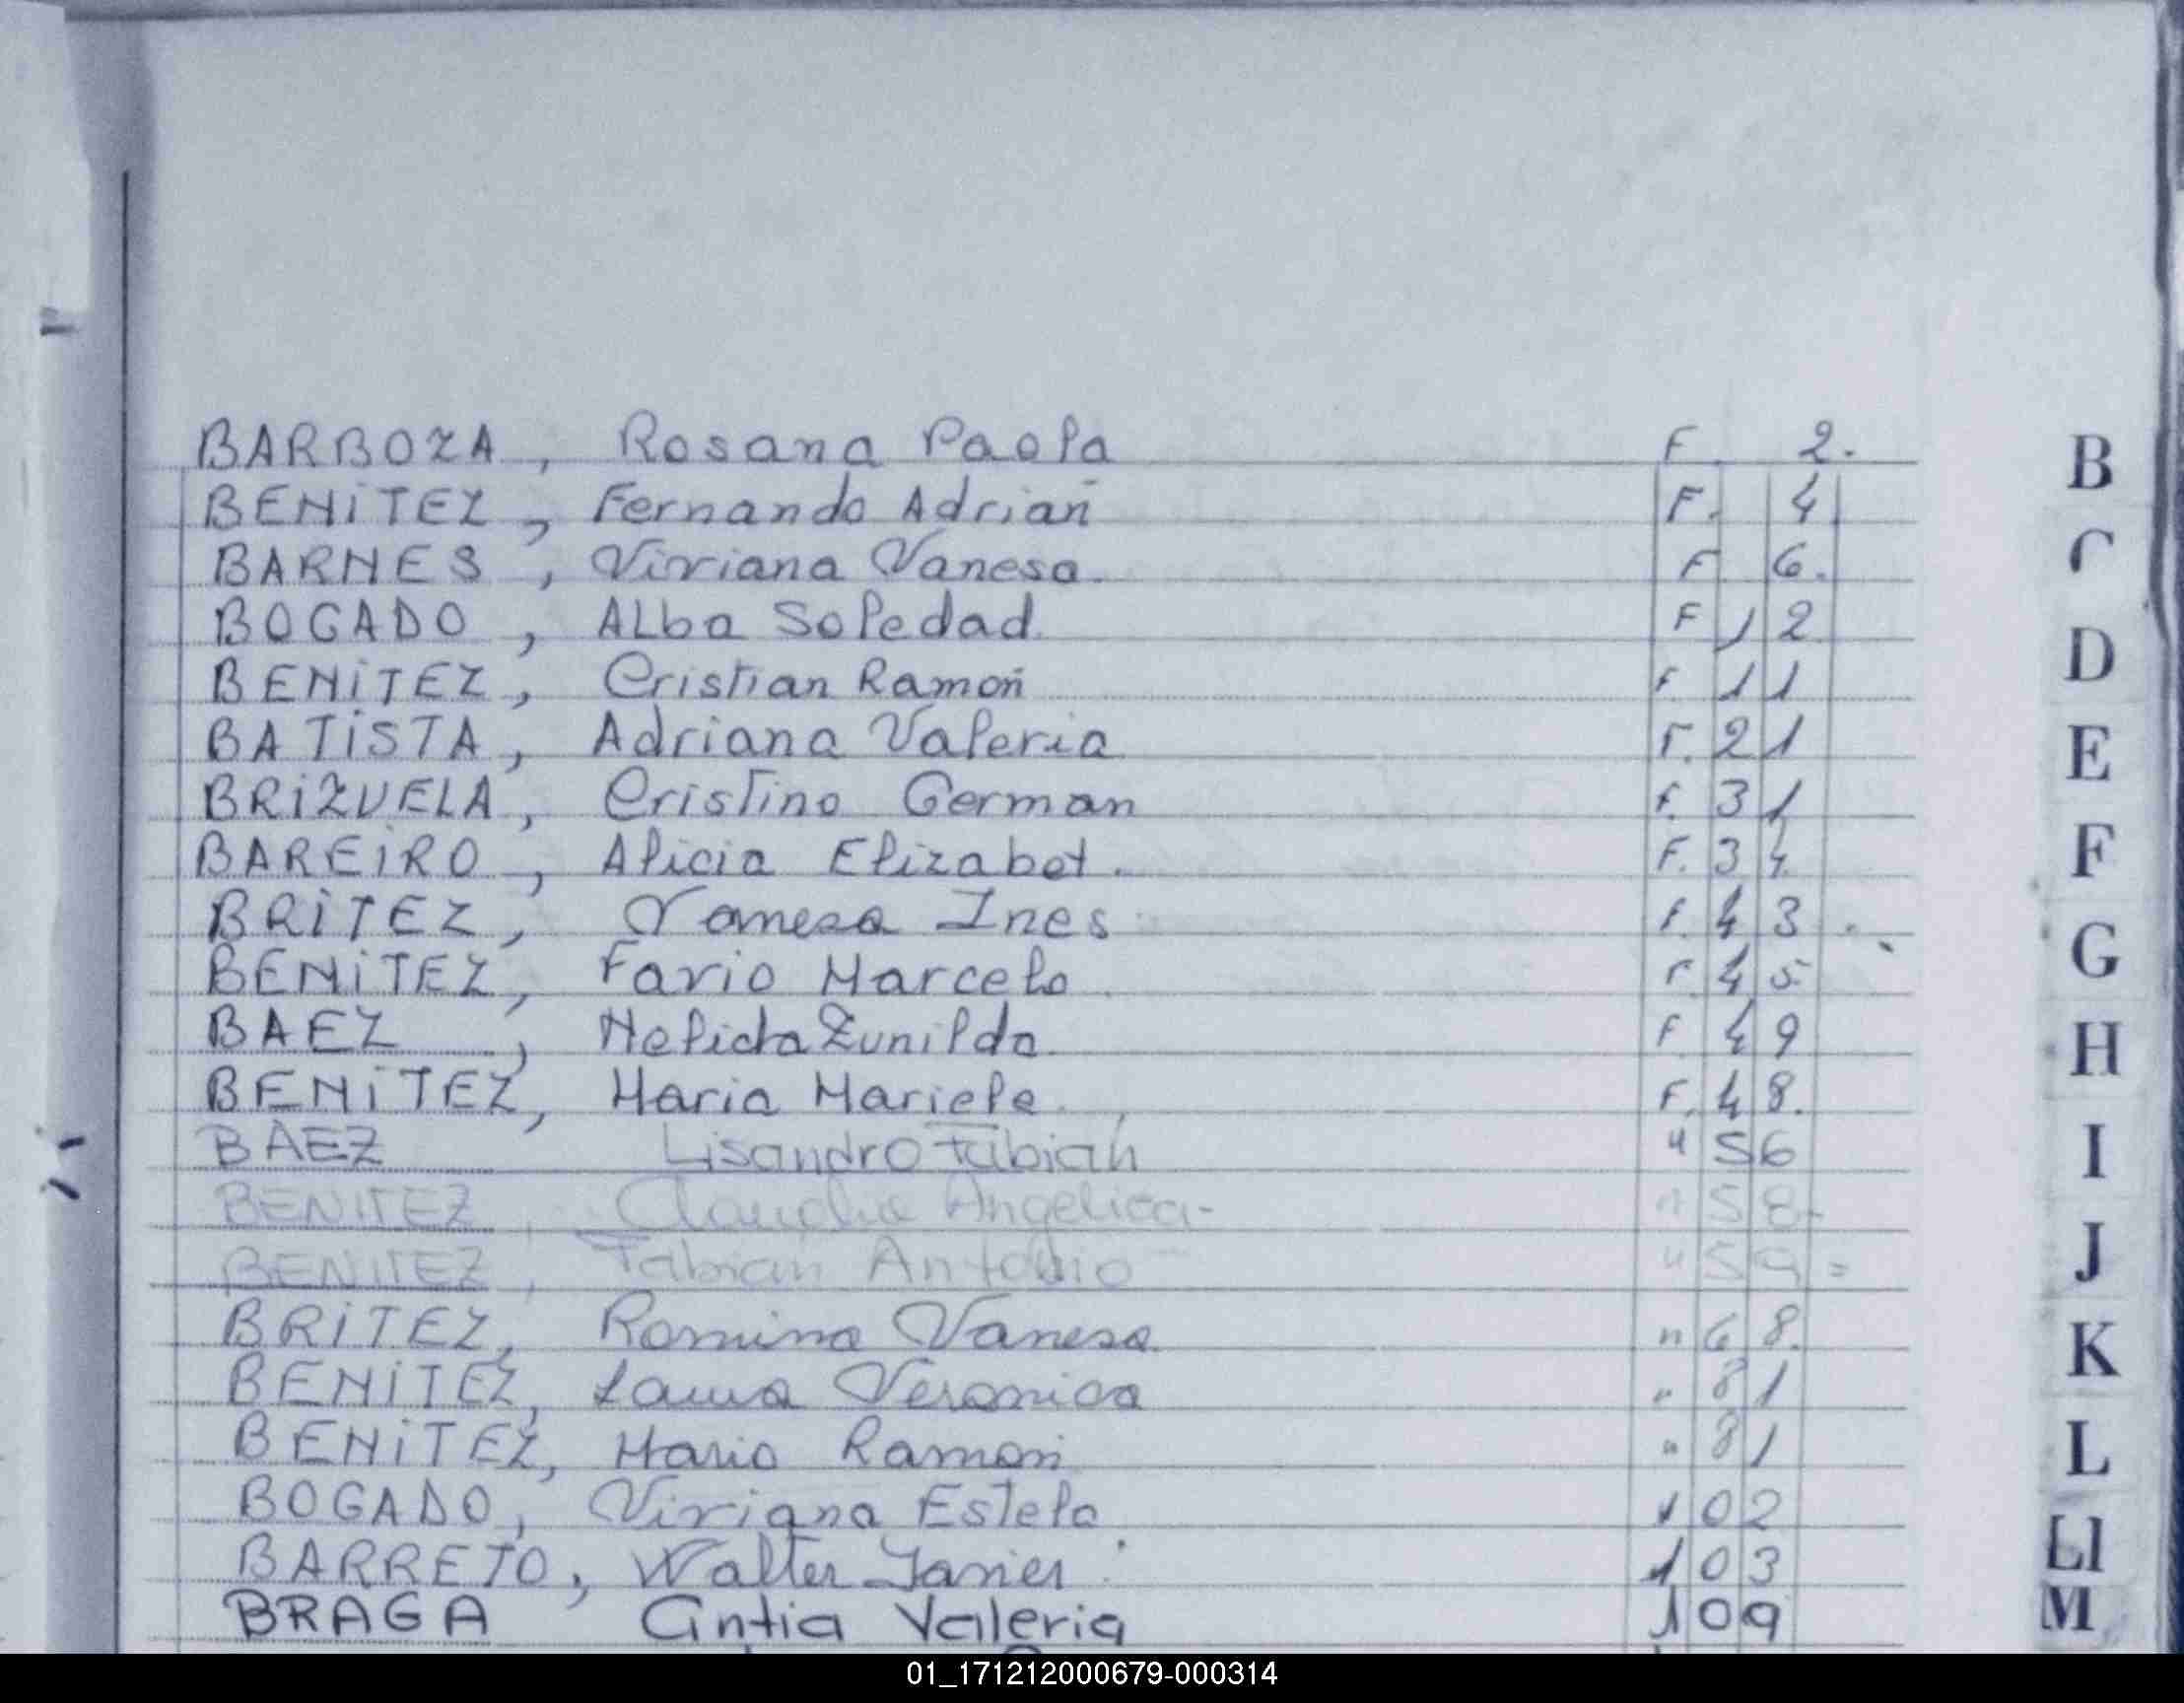 BARBOZA, Rosana Paola F. 2.
BENITEZ, Fernando Adrian F. 4
BARNES, Viviana Vanesa. F 6.
BOGADO, ALba Soledad. F 12
BENITEZ, Cristian Ramon F. 11
BATISTA, Adriana Valeria F. 21
BRIZUELA, Cristino German F. 31
BAREIRO, Alicia Elizabet. F. 34
BRITEZ, Vanesa Ines F. 43.
BENITEZ, Favio Marcelo F. 45
BAEZ, Nelida Zunilda F. 49
BENITEZ, Maria Mariele F. 48.
BAEZ Lisandro Fabian " 56
BENITEZ, Claudia Angelica- " 58-
BENITEZ, Fabian Antonio " 59=
BRITEZ, Romina Vanesa " 68.
BENITEZ, Laura Veronica " 81
BENITEZ, Mario Ramon " 81
BOGADO, Viviana Estela 102
BARRETO, Walter Javier 103
BRAGA Cintia Valeria 109
B
C
D
E
F
G
H
I
J
K
L
Ll
M
01_171212000679-000314